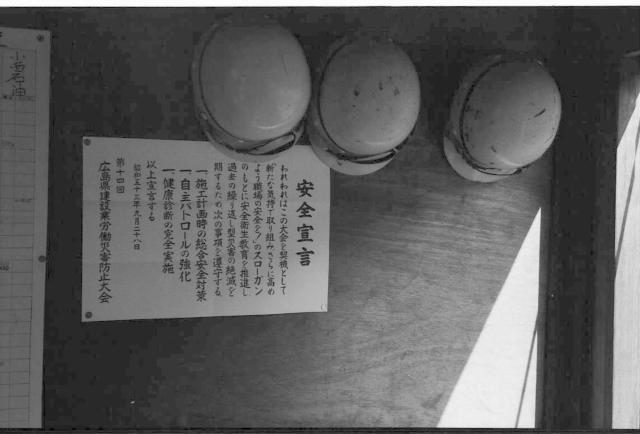 安全宣言
われわれはこの大会を契機として
「新たな気持で取り組みさらに高め
よう職場の安全を!」のスローガン
のもとに安全衛生教育を推進し
過去の繰り返し型災害の絶滅を
期するため次の事項を遵守する。
一、施工計画時の総合安全対策
一、自主パトロールの強化
一、健康診断の完全実施
以上宣言する
昭和五十三年九月二十八日
第十四回
広島県建設業労働災害防止大会